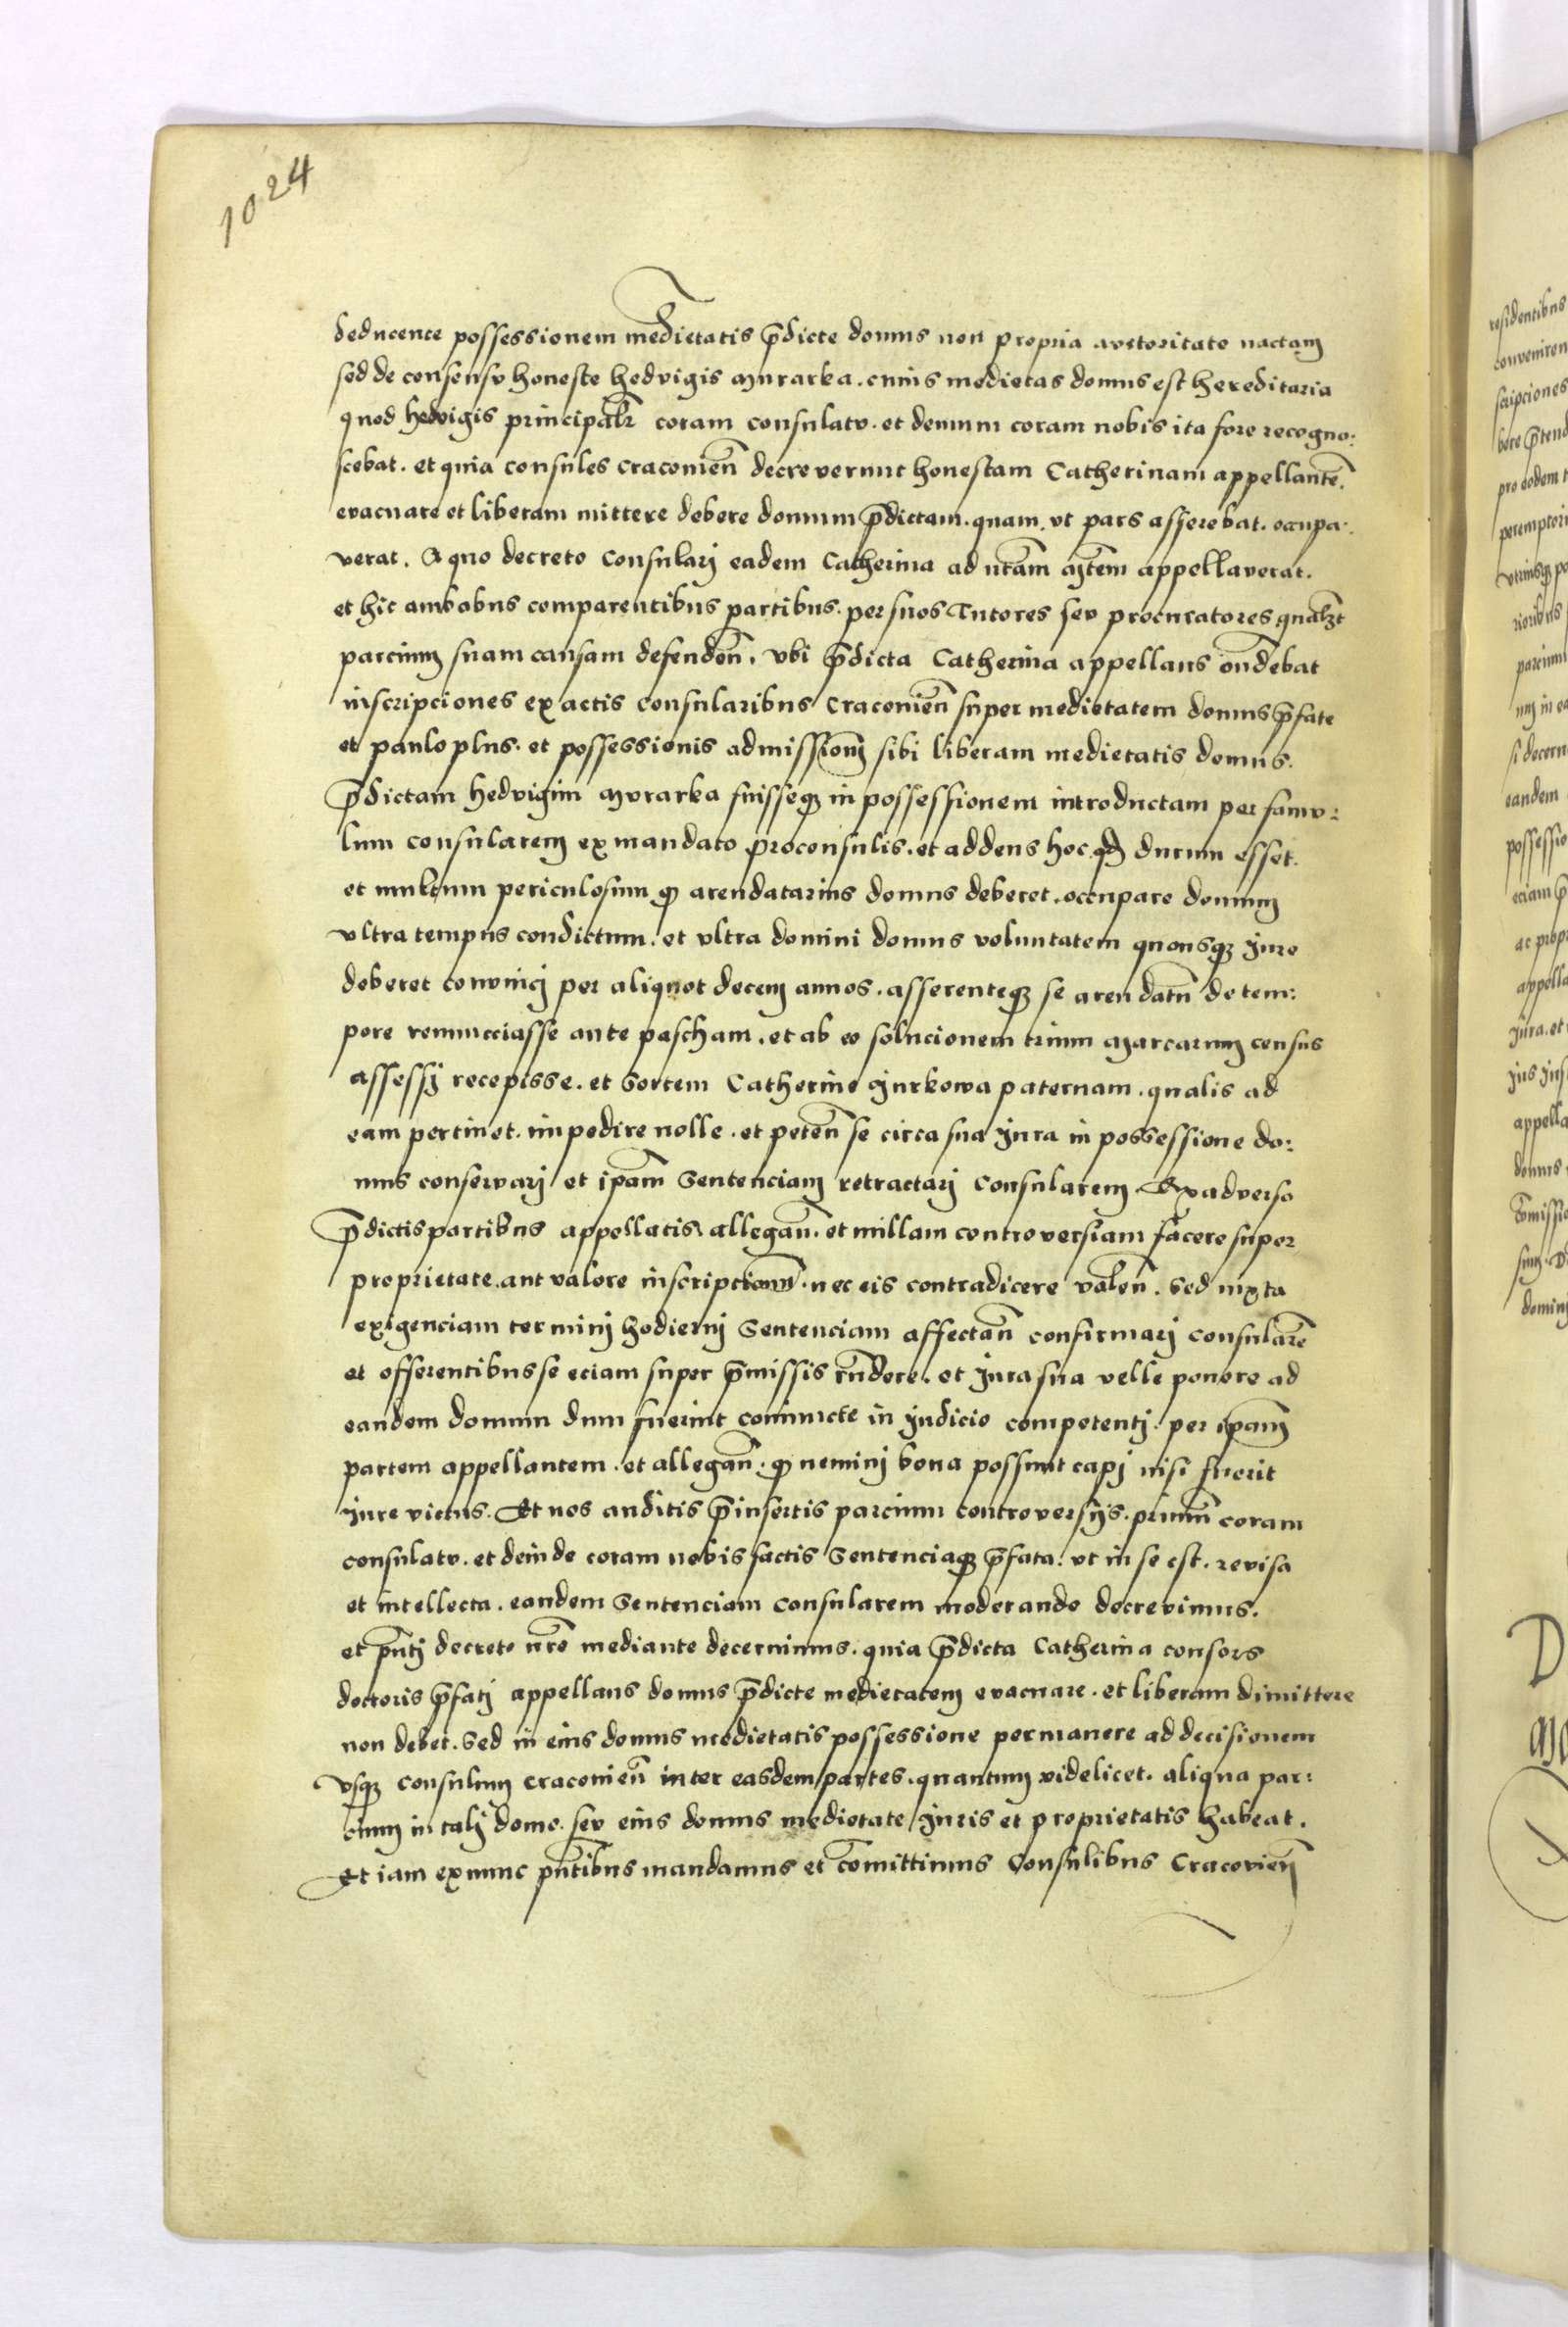 1024
deducente possessionem medietatis p̄dicte domus non propria avctoritate nactam
sed de consensv honeste hedvigis Murarka. cuius medietas domus est hereditaria
quod hedvigis principalr̄ coram consulatv. et demum coram nobis ita fore recogno:
scebat. et quia consules craconien̄ decreverunt honestam Catherinam appellantē.
evacuare et liberam mittere debere domum p̄dictam. quam. vt pars asserebat. occupa.
verat. A quo decreto consularj eadem Catherina ad nrām Mtēm appellaverat.
et hic ambabus comparentibus partibus. per suos Tutores sev procuratores qualꝫt
parcium suam causam defenden̄. vbi p̄dicta Catherina appellans on̄debat
inscripciones ex actis consularibus Craconien̄ super medietatem domus p̄fate
et paulo plus. et possessionis admissionē sibi liberam medietatis domus.
p̄dictam hedvigim Mvrarka fuisseqꝫ in possessionem introductam per famv:
lum consularem ex mandato proconsulis. et addens hoc qd̄ durum esset.
et multum periculosum ꝙ arendatarius domus deberet. occupare domum
vltra tempus condictum. et vltra domini domus voluntatem quousqꝫ jure
deberet convincj per aliquot decem annos. asserenteqꝫ se arendatū de tem:
pore renuncciasse ante pascham. et ab eo solucionem trium Marcarum census
assessj recepisse. et Sortem Catherine Jurkowa paternam. qualis ad
eam pertinet. impedire nolle. et peten̄ se circa sua jura in possessione do:
mus conservarj et ipam̄ Sentenciam retractarj Consularem. Ex adverso
p̄dictis partibus appellatis allegan̄. et nullam controversiam facere super
proprietate. aut valore inscripcionū. nec eis contradicere valen̄. Sed iuxta
exigenciam terminj hodiernj Sentenciam affectan̄ confirmarj consularē
et offerentibus se eciam super p̄missis rn̄dere. et jura sua velle ponere ad
eandem domum dum fuerint coniuncte in judicio competentj. per ipam̄
partem appellantem. et allegan̄. ꝙ neminj bona possunt capj nisi fuerit
jure victus. Et nos auditis p̄insertis parcium controversijs. primū coram
consulatv. et deinde coram nobis factis Sentenciaqꝫ p̄fata. vt in se est. revisa
et intellecta. eandem Sentenciam consularem moderando decrevimus.
et pn̄tj decreto nrō mediante decernimus. quia p̄dicta Catherina consors
doctoris p̄fatj appellans domus p̄dicte medietatem evacuare. et liberam dimittere
non debet. Sed in eius domus medietatis possessione permanere ad decisionem
vsqꝫ consulum craconien̄ inter easdem partes. quantum videlicet. aliqua par:
cium in talj domo. sev eius domus medietate juris et proprietatis habeat.
Et iam ex nunc pn̄tibus mandamus et com̄ittimus Consulibus Cracovien̄